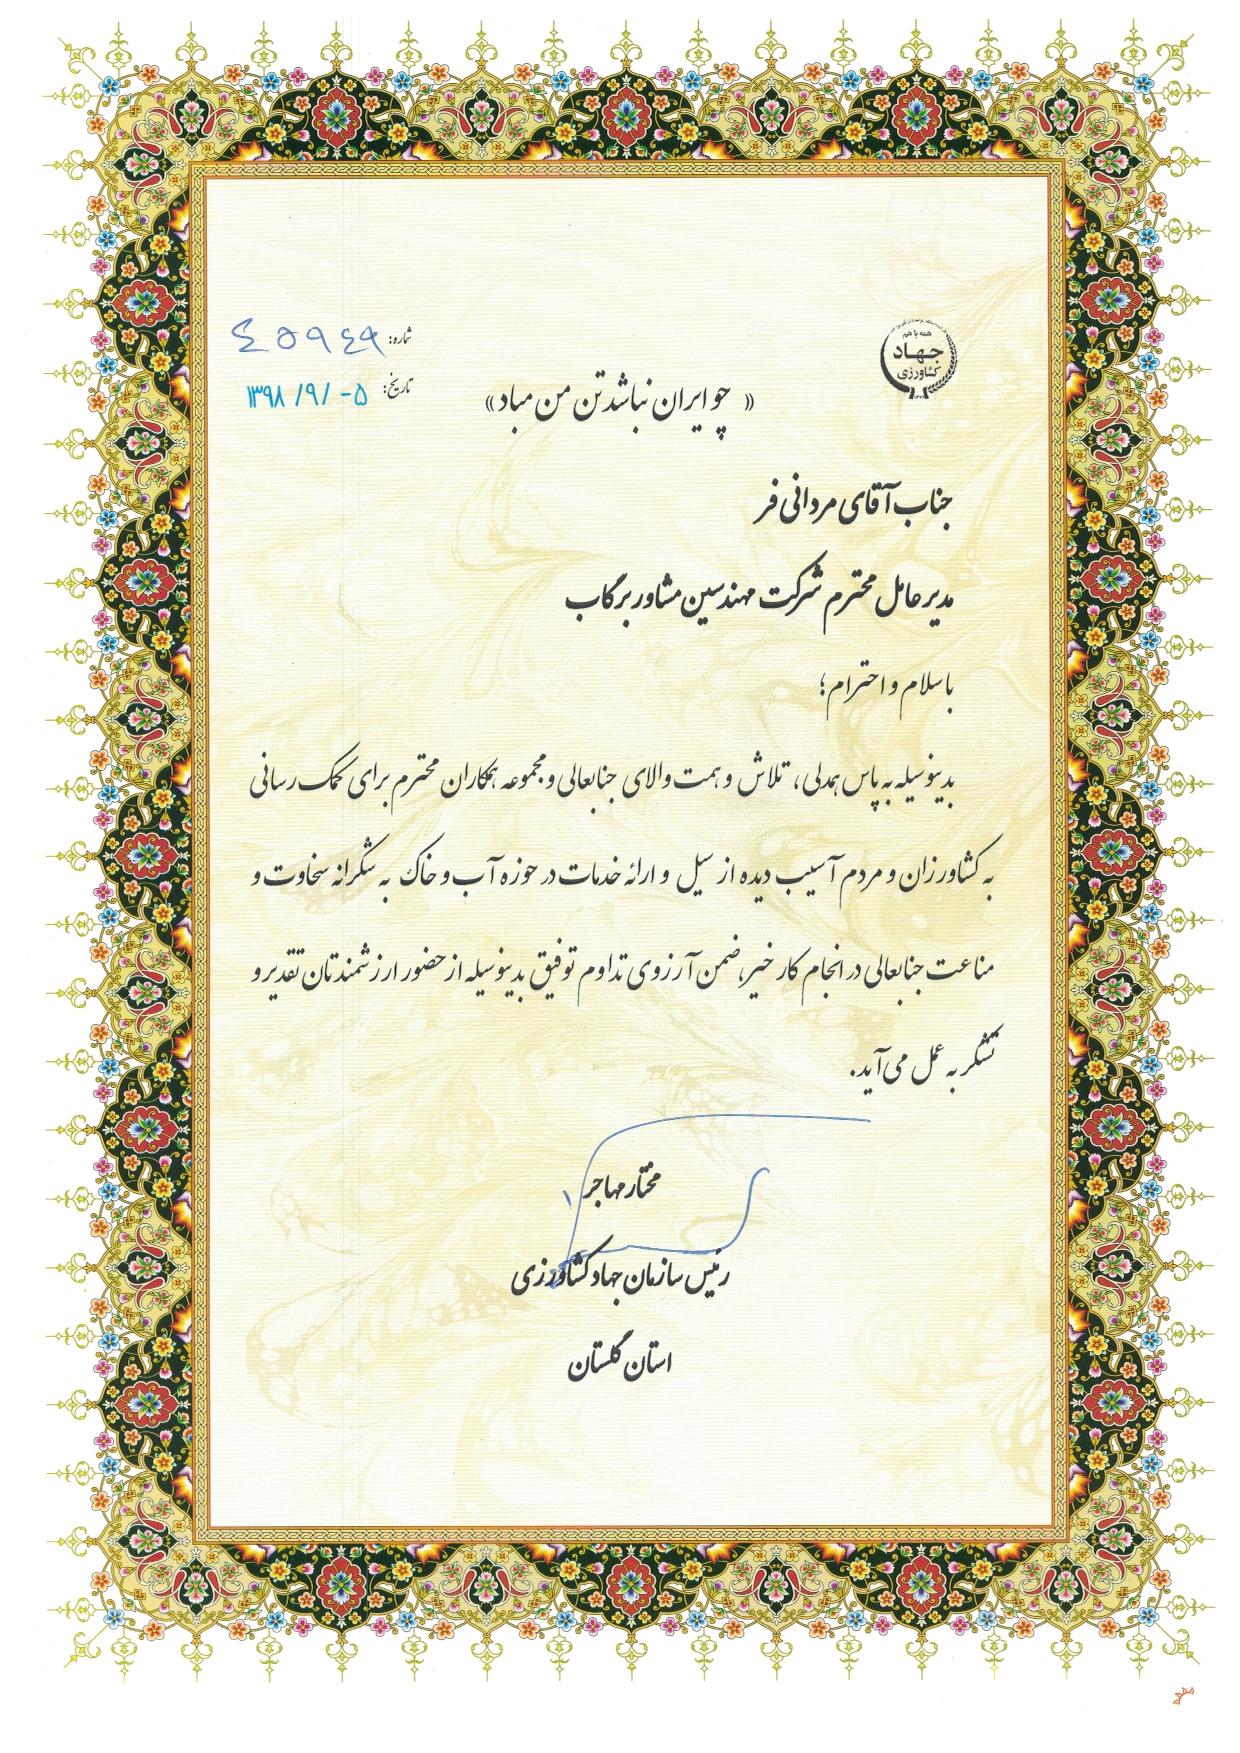 همه با هم
جهاد
کشاورزی
شماره: ٤٥٩٤٩
تاریخ: ۱۳۹۸/۹/-۵
« چو ایران نباشد تن من مباد »
جناب آقای مردانی فر
مدیر عامل محترم شرکت مهندسین مشاور برگاب
با سلام و احترام؛
بدینوسیله به پاس همدلی، تلاش و همت والای جنابعالی و مجموعه همکاران محترم برای کمک رسانی
به کشاورزان و مردم آسیب دیده از سیل و ارائه خدمات در حوزه آب و خاک به شکرانه سخاوت و
مناعت جنابعالی در انجام کار خیر، ضمن آرزوی تداوم توفیق بدینوسیله از حضور ارزشمندتان تقدیر و
تشکر به عمل می آید.
مختار مهاجر
رئیس سازمان جهاد کشاورزی
استان گلستان